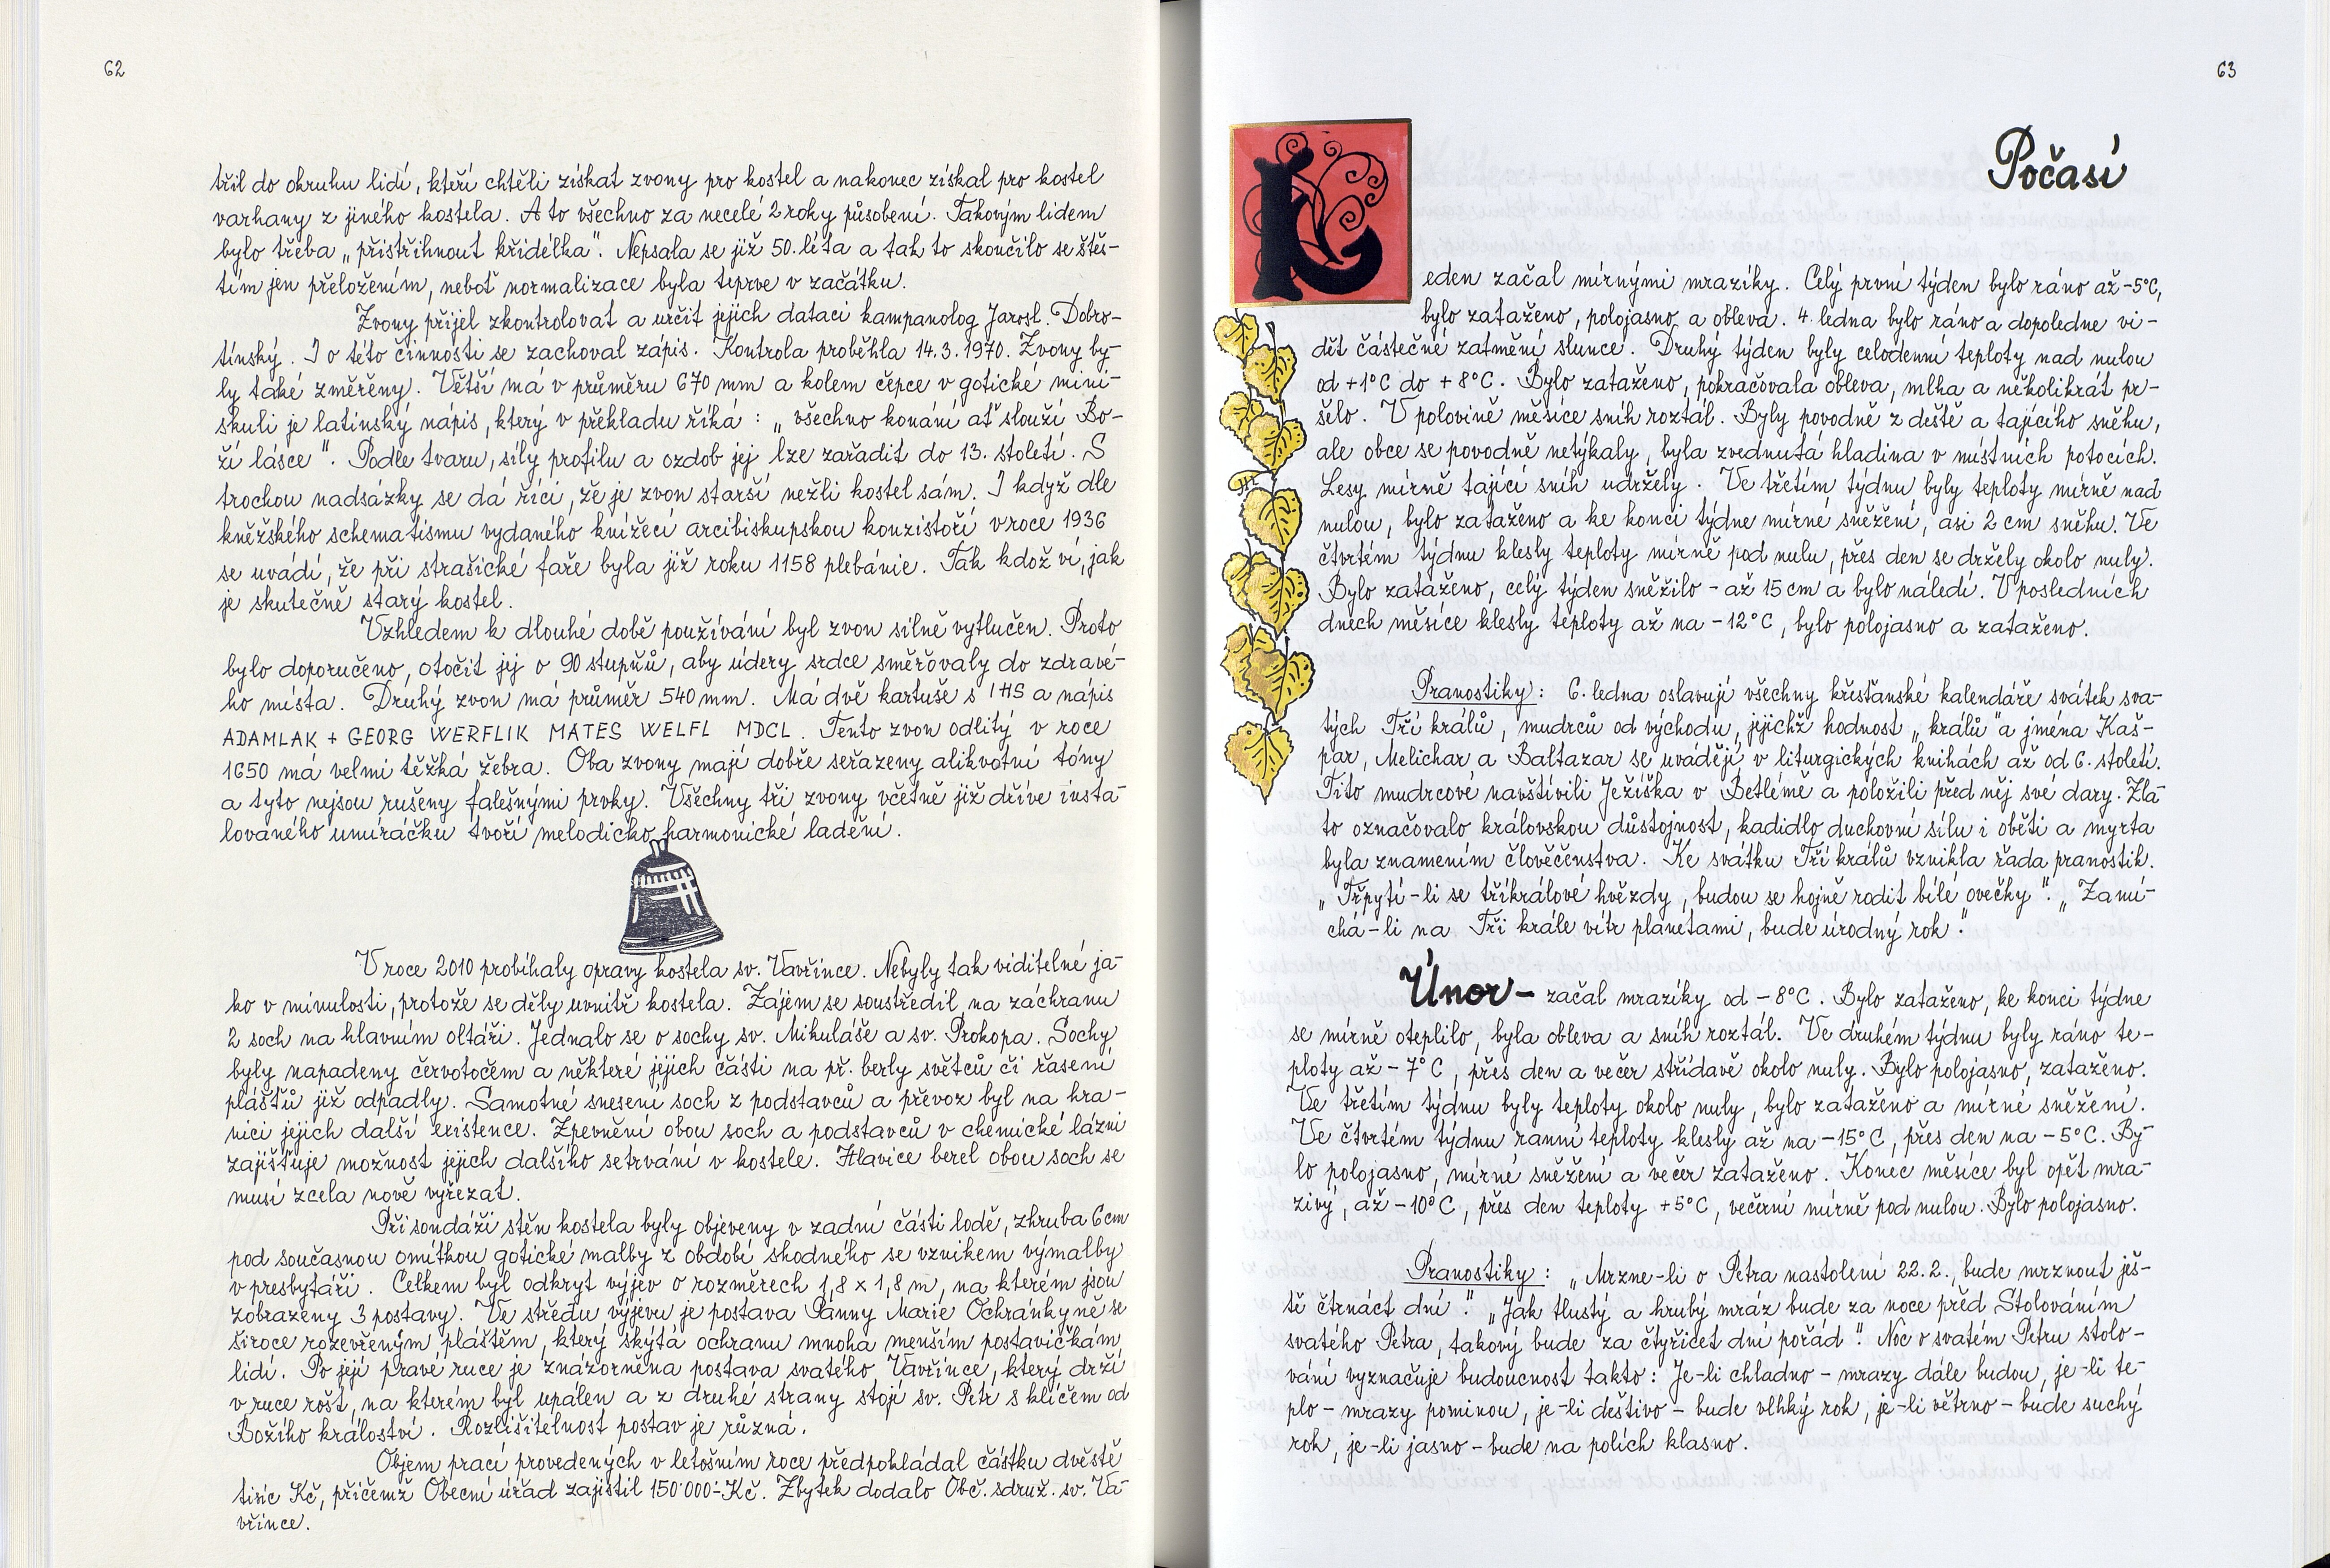 62
třil do okruhu lidí, kteří chtěli získat zvony pro kostel a nakonec získal pro kostel
varhany z jiného kostela. A to všechno za necelé 2 roky působení. Takovým lidem
bylo třeba „přistřihnout křidélka". Nepsala se již 50. léta a tak to skončilo se štěs-
tím jen přeložením, neboť normalizace byla teprve v začátku.
Zvony přijel zkontrolovat a určit jejich dataci kampanolog Jarosl. Dobro-
tínský. I o této činnosti se zachoval zápis. Kontrola proběhla 14.3.1970. Zvony by-
ly také změřeny. Větší má v průměru 670 mm a kolem čepce v gotické mini-
skuli je latinský nápis, který v překladu říká: „všechno konání ať slouží Bo-
ží lásce". Podle tvaru, síly profilu a ozdob jej lze zařadit do 13. století. S
trochou nadsázky se dá říci, že je zvon starší nežli kostel sám. I když dle
kněžského schematismu vydaného knížecí arcibiskupskou konzistoří v roce 1936
se uvádí, že při strašické faře byla již roku 1158 plebánie. Tak kdož ví, jak
je skutečně starý kostel.
Vzhledem k dlouhé době používání byl zvon silně vytlučen. Proto
bylo doporučeno, otočit jej o 90 stupňů, aby údery srdce směřovaly do zdravé-
ho místa. Druhý zvon má průměr 540 mm. Má dvě kartuše s IHS a nápis
ADAMLAK + GEORG WERFLIK MATES WELFL MDCL. Tento zvon odlitý v roce
1650 má velmi těžká žebra. Oba zvony mají dobře seřazeny alikvotní tóny
a tyto nejsou rušeny falešnými prvky. Všechny tři zvony včetně již dříve insta-
lovaného umíráčku tvoří melodicko harmonické ladění.
V roce 2010 probíhaly opravy kostela sv. Vavřince. Nebyly tak viditelné ja-
ko v minulosti, protože se děly uvnitř kostela. Zájem se soustředil na záchranu
2 soch na hlavním oltáři. Jednalo se o sochy sv. Mikuláše a sv. Prokopa. Sochy
byly napadeny červotočem a některé jejich části na př. berly světců či řasení
pláštů již odpadly. Samotné snesení soch z podstavců a převoz byl na hra-
nici jejich další existence. Zpevnění obou soch a podstavců v chemické lázni
zajišťuje možnost jejich dalšího setrvání v kostele. Hlavice berel obou soch se
musí zcela nově vyřezat.
Při sondáži stěn kostela byly objeveny v zadní části lodě, zhruba 6 cm
pod současnou omítkou gotické malby z období shodného se vznikem výmalby
v presbytáři. Celkem byl odkryt výjev o rozměrech 1,8 × 1,8 m, na kterém jsou
zobrazeny 3 postavy. Ve středu výjevu je postava Panny Marie Ochránkyně se
široce rozevřeným pláštěm, který skýtá ochranu mnoha menším postavičkám
lidí. Po její pravé ruce je znázorněna postava svatého Vavřince, který drží
v ruce rošt, na kterém byl upálen a z druhé strany stojí sv. Petr s klíčem od
Božího království. Rozlišitelnost postav je různá.
Objem prací provedených v letošním roce předpokládal částku dvěstě
tisíc Kč, přičemž Obecní úřad zajistil 150 000,-Kč. Zbytek dodalo Obč. sdruž. sv. Va-
vřince.
63
Počasí
Leden začal mírnými mrazíky. Celý první týden bylo ráno až -5°C,
bylo zataženo, polojasno a obleva. 4. ledna bylo ráno a dopoledne vi-
dět částečné zatmění slunce. Druhý týden byly celodenní teploty nad nulou
od +1°C do +8°C. Bylo zataženo, pokračovala obleva, mlha a několikrát pr-
šelo. V polovině měsíce sníh roztál. Byly povodně z deště a tajícího sněhu,
ale obce se povodně netýkaly, byla zvednutá hladina v místních potocích.
Lesy mírně tající sníh udržely. Ve třetím týdnu byly teploty mírně nad
nulou, bylo zataženo a ke konci týdne mírné sněžení, asi 2 cm sněhu. Ve
čtvrtém týdnu klesly teploty mírně pod nulu, přes den se držely okolo nuly.
Bylo zataženo, celý týden sněžilo - až 15 cm a bylo náledí. V posledních
dnech měsíce klesly teploty až na -12°C, bylo polojasno a zataženo.
Pranostiky: 6. ledna oslavují všechny křesťanské kalendáře svátek sva-
tých Tří králů, mudrců od východu, jejichž hodnost „králů" a jména Kaš-
par, Melichar a Baltazar se uvádějí v liturgických knihách až od 6. století.
Tito mudrcové navštívili Ježíška v Betlémě a položili před něj své dary. Zla-
to označovalo královskou důstojnost, kadidlo duchovní sílu i oběti a myrta
byla znamením člověčenstva. Ke svátku Tří králů vznikla řada pranostik.
„Třpytí-li se tříkrálové hvězdy, budou se hojně rodit bílé ovečky". „Zamí-
chá-li na Tři krále vítr planetami, bude úrodný rok".
Únor - začal mrazíky od -8°C. Bylo zataženo, ke konci týdne
se mírně oteplilo, byla obleva a sníh roztál. Ve druhém týdnu byly ráno te-
ploty až -7°C, přes den a večer střídavě okolo nuly. Bylo polojasno, zataženo.
Ve třetím týdnu byly teploty okolo nuly, bylo zataženo a mírné sněžení.
Ve čtvrtém týdnu ranní teploty klesly až na -15°C, přes den na -5°C. By-
lo polojasno, mírné sněžení a večer zataženo. Konec měsíce byl opět mra-
zivý, až -10°C, přes den teploty +5°C, večerní mírně pod nulou. Bylo polojasno.
Pranostiky: „Mrzne-li o Petra nastolení 22.2., bude mrznout jiš-
tě čtrnáct dní". „Jak tlustý a hrubý mráz bude za noce před Stolováním
svatého Petra, takový bude za čtyřicet dní pořád". Noc o svatém Petru stolo-
vání vyznačuje budoucnost takto: Je-li chladno - mrazy dále budou, je-li te-
plo - mrazy pominou, je-li deštivo - bude vlhký rok, je-li větrno - bude suchý
rok, je-li jasno - bude na polích klasno.